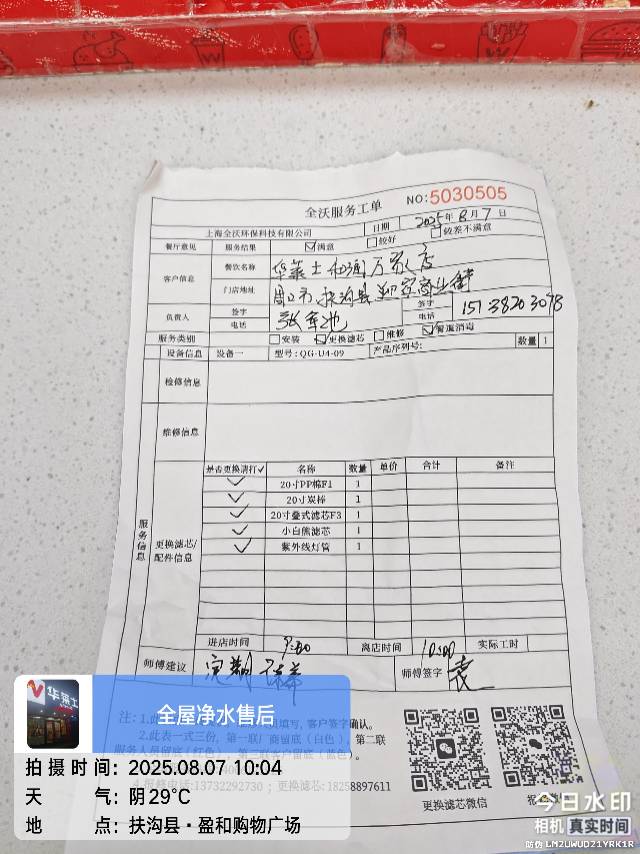 全沃服务工单
NO:5030505
上海全沃环保科技有限公司
日期 2025年8月7日
餐厅意见 服务结果 ☑满意 □较好 □较差不满意
客户信息 餐饮名称 华莱士和润万家店
门店地址 周口市扶沟县
负责人 签字
电话
签字
电话 15738203078
服务类别 □安装 ☑更换滤芯 □维修 ☑管道消毒
设备信息 设备一 型号:QG-U4-09 产品序列号: 数量 1
检修信息
维修信息
服务信息
更换滤芯/配件信息
是否更换请打✓ 名称 数量 单价 合计 备注
✓ 20寸PP棉F1 1
✓ 20寸炭棒 1
✓ 20寸叠式滤芯F3 1
✓ 小白熊滤芯 1
✓ 紫外线灯管 1
进店时间 9:30 离店时间 10:00 实际工时
师傅建议 定期 师傅签字 袁
注:1.此 填写,客户签字确认。
2.此表一式三份,第一联厂商留底(白色),第二联
服务人员留底(红色),第三联客户留底(蓝色)。
4.报修电话:13732292730 ;更换滤芯:18258897611
更换滤芯微信
华莱士
全屋净水售后
拍摄时间:2025.08.07 10:04
天气:阴 29℃
地点:扶沟县·盈和购物广场
今日水印
相机 真实时间
防伪 LM2UWUD21YRK1R